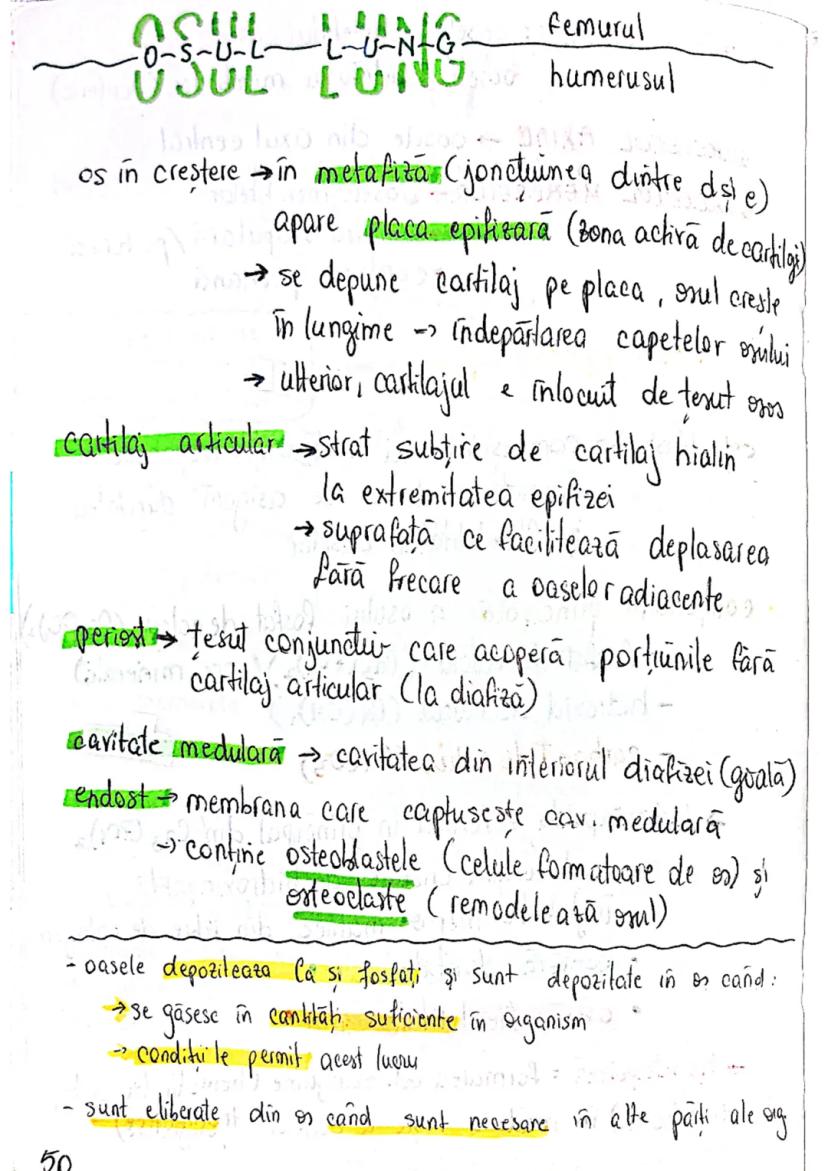 OSUL LUNG
femurul
humerusul
os în creștere → în metafiză (joncțiunea dintre d și e)
apare placa epifizară (zona activă de cartilaj)
→ se depune cartilaj pe placa, osul crește
în lungime → îndepărtarea capetelor osului
→ ulterior, cartilajul e înlocuit de țesut osos
cartilaj articular → strat subțire de cartilaj hialin
la extremitatea epifizei
→ suprafață ce facilitează deplasarea
fără frecare a oaselor adiacente
periost → țesut conjunctiv care acoperă porțiunile fără
cartilaj articular (la diafiză)
cavitate medulară → cavitatea din interiorul diafizei (goală)
endost → membrana care captusește cav. medulară
→ conține osteoblastele (celule formatoare de os) și
osteoclaste (remodelează osul)
- oasele depoziteaza Ca și fosfați și sunt depozitate în os când:
→ se găsesc în cantități suficiente în organism
→ condițiile permit acest lucru
- sunt eliberate din os când sunt necesare în alte părți ale org
50